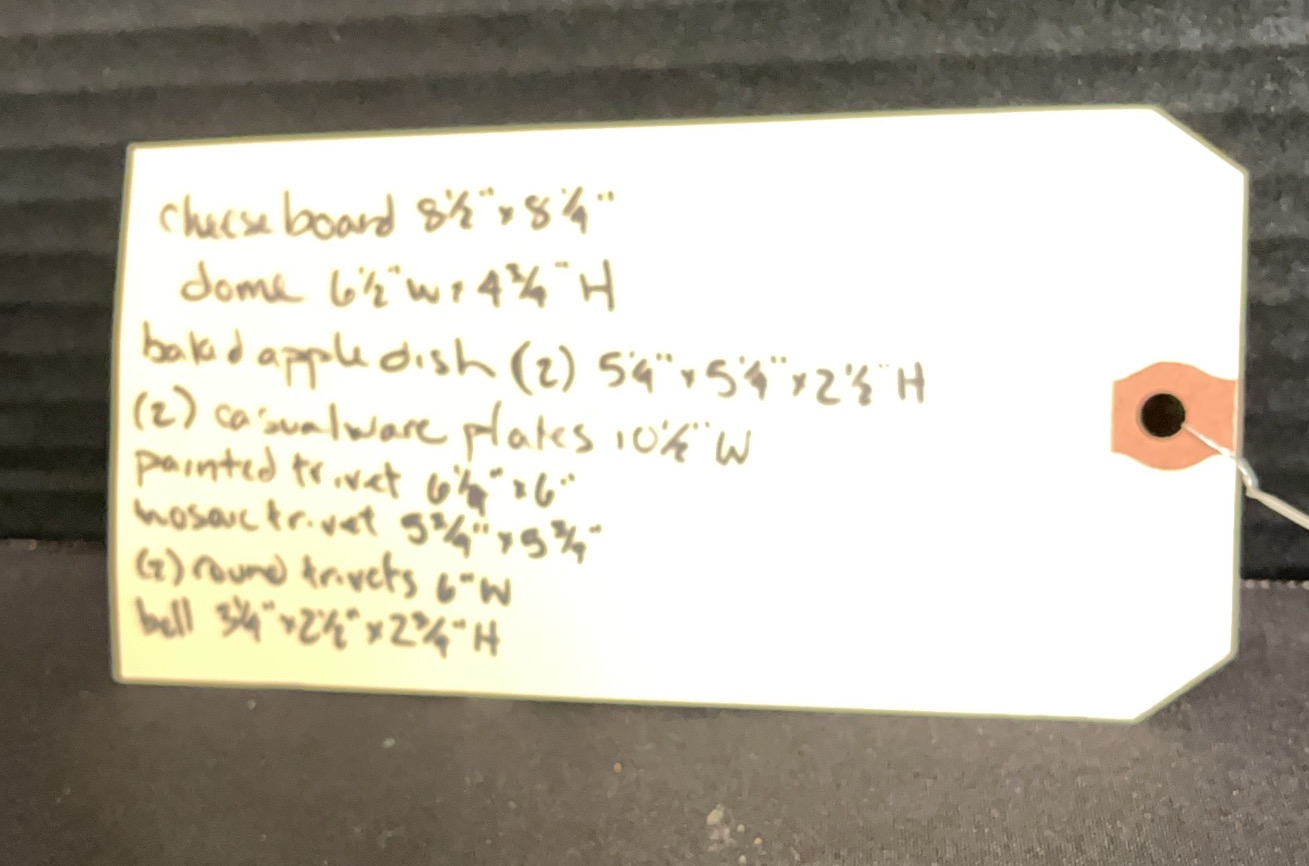 cheese board 8 1/2" x 8 1/4"
dome 6 1/2" W x 4 3/4" H
baked apple dish (2) 5 1/4" x 5 1/4" x 2 1/2" H
(2) casualware plates 10 1/2" W
painted trivet 6 1/4" x 6"
mosaic trivet 5 3/4" x 5 3/4"
(2) round trivets 6" W
bell 3 1/4" x 2 1/2" x 2 3/4" H